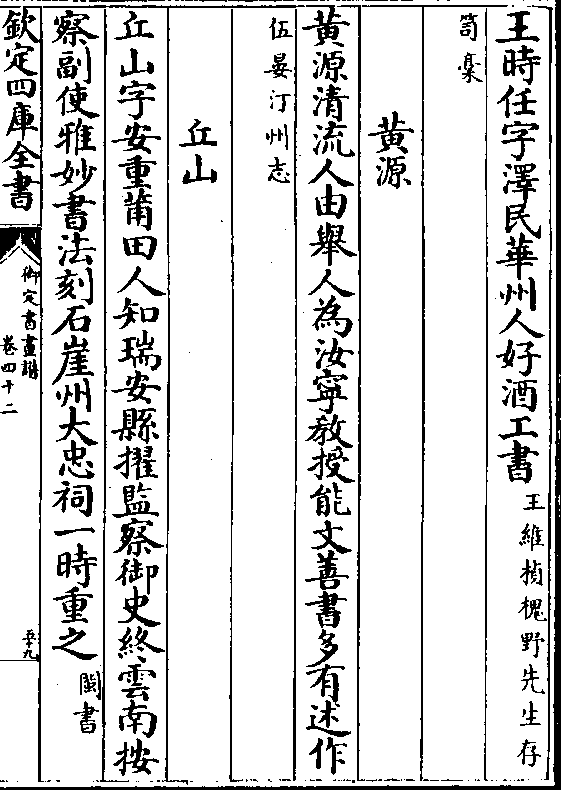 王時任字澤民華州人好酒工書王維楨槐野先生存
笥稾
黄源
黄源清流人由舉人為汝寧教授能文善書多有述作
伍晏汀州志
丘山
丘山字安重莆田人知瑞安縣擢監察御史終雲南按
察副使雅妙書法刻石崖州大忠祠一時重之閩書
欽定四庫全書
御定書畫譜
卷四十二
五十九